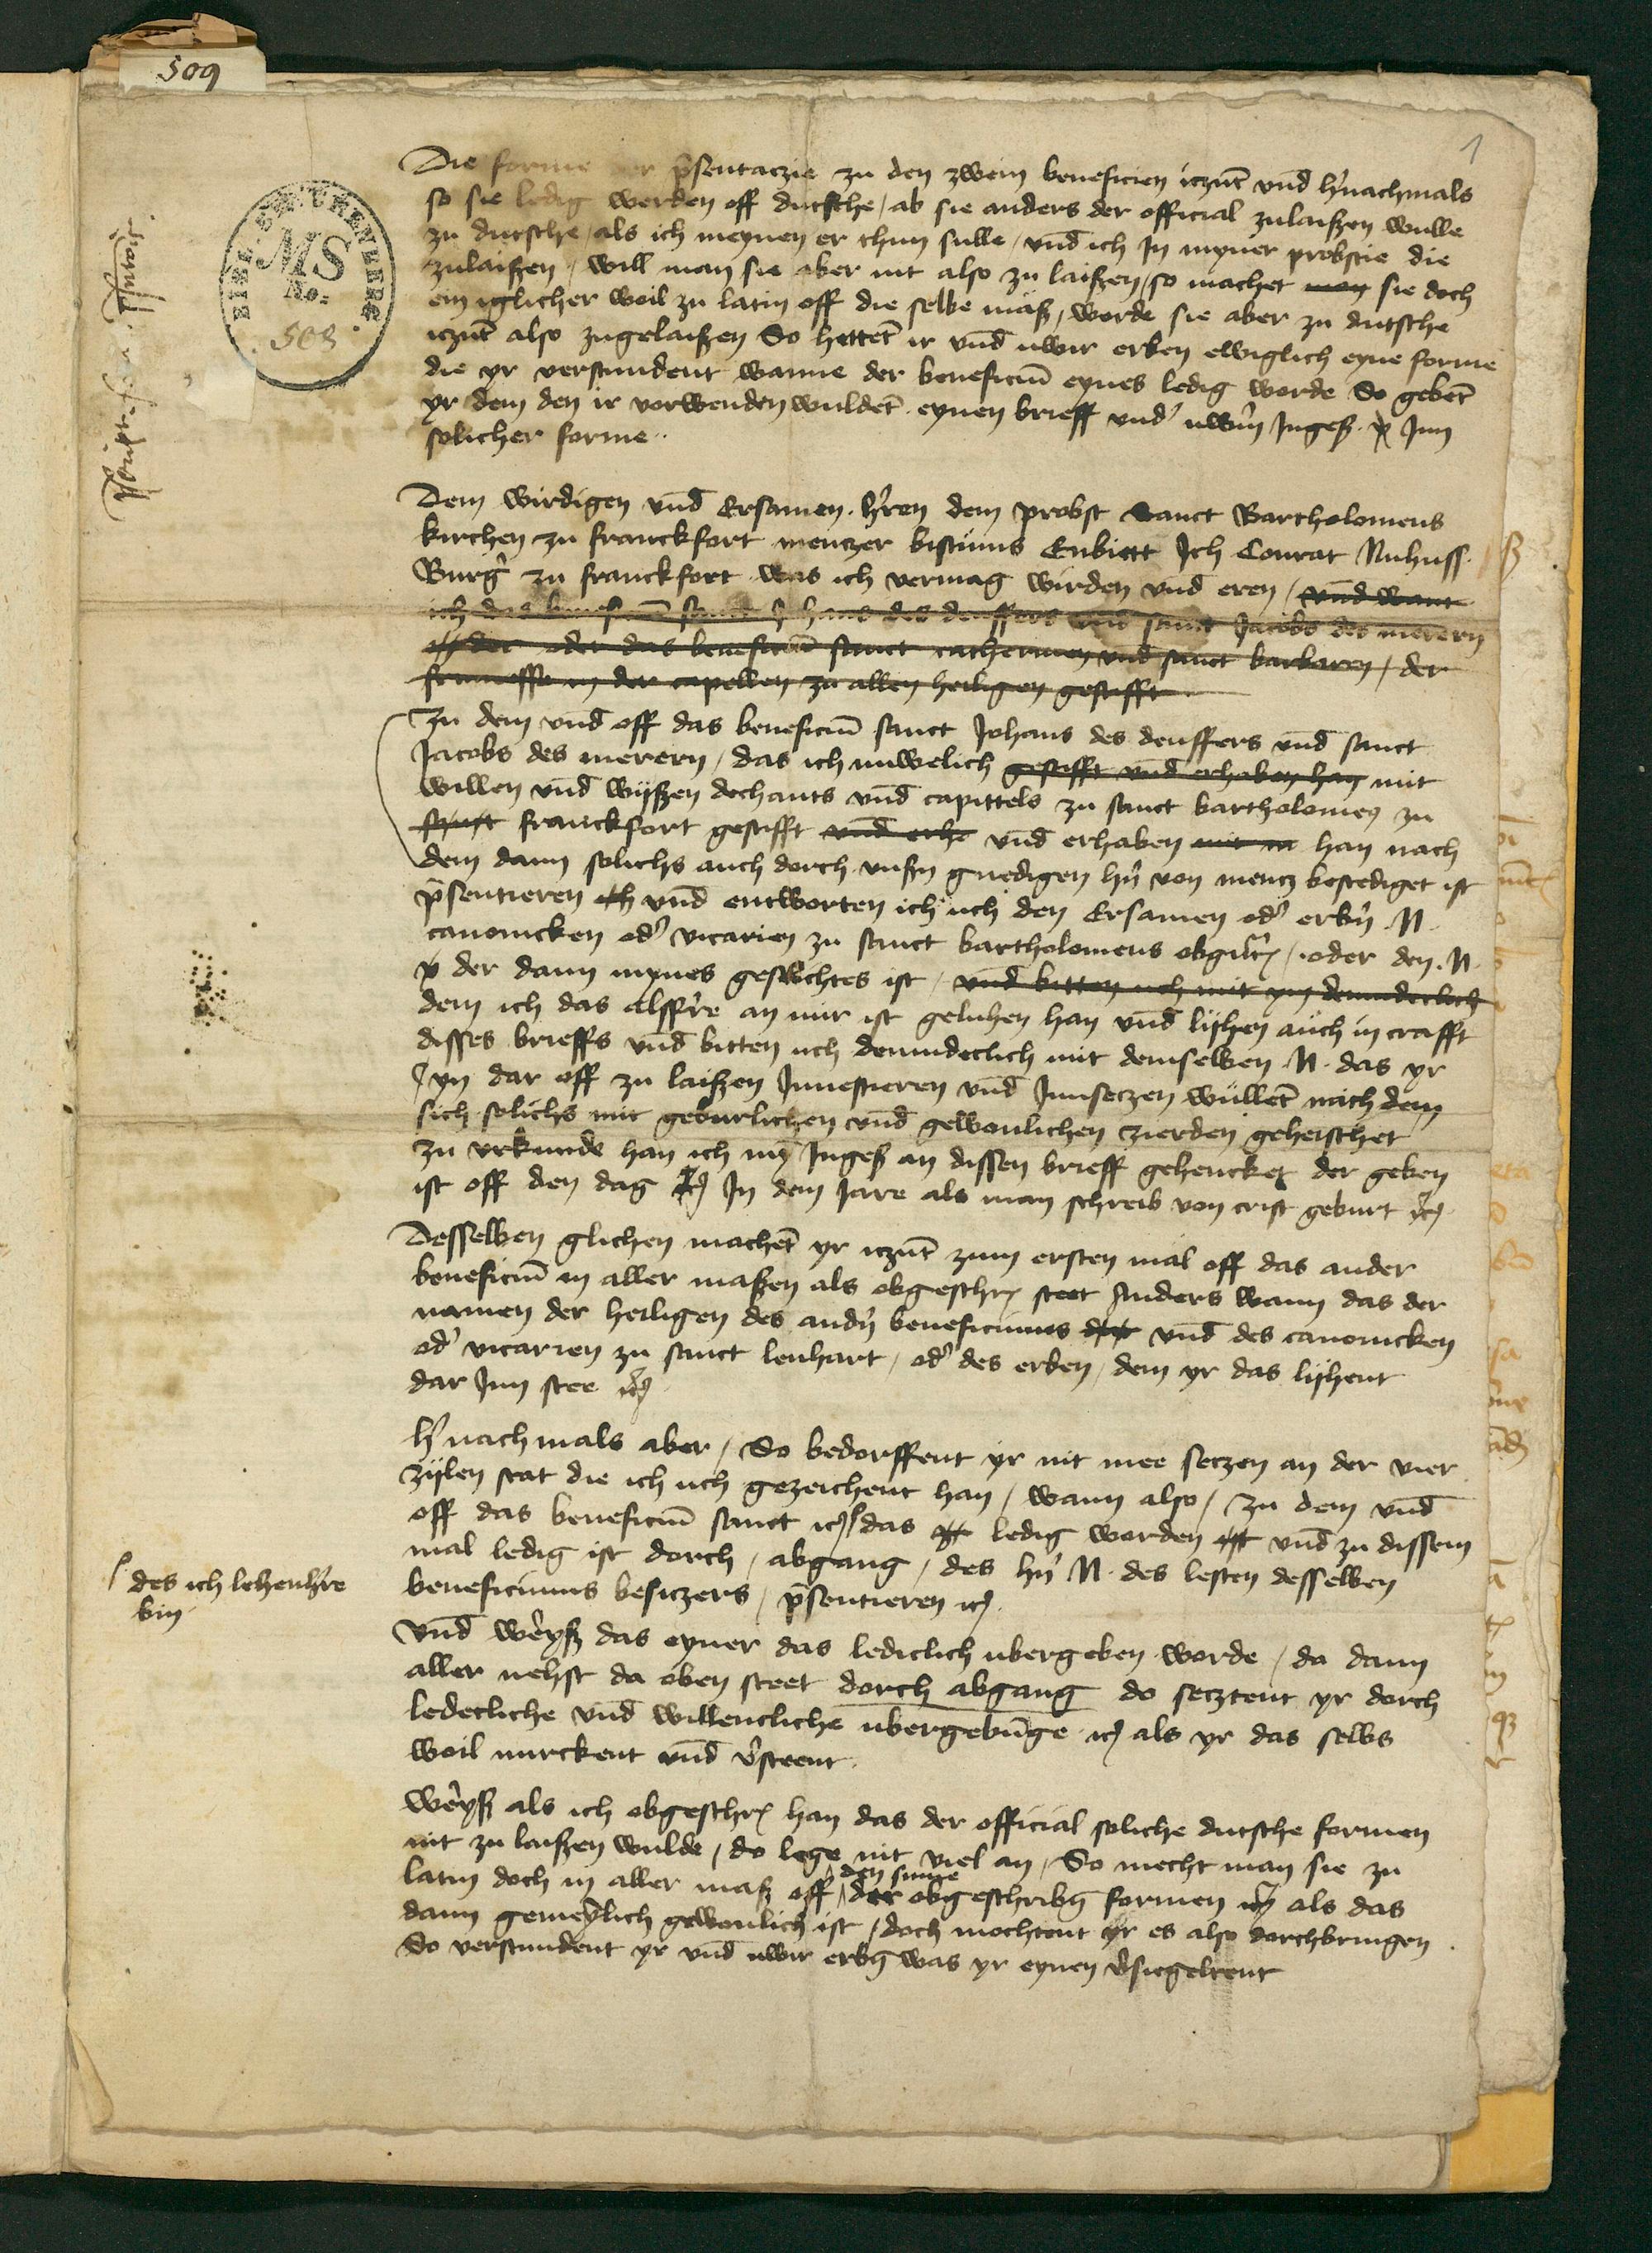 509
1
BIBL. GYM.
MS
No:
Die forme der p̄sentaczie zu den zwein beneficien iczūt vnd h'nachmals
so sie ledig werden off dutsche / ab sie anders der official zulaißen wulle
zu dutsche / als ich meynen er thun sulle / vnd ich In myner probstie die
zulaißen / will man sie aber nit also zu laißen / so machet man sie doch
ein iglicher woil zu latin off die selbe maiß / worde sie aber zu dutsche
iczūt also zugelaißen So hettet̄ ir vnd uwir erben ewiglich eyne forme
die yr verstundent wanne der beneficiū eynes ledig worde So gebet̄
yr dem den ir vorwenden wuldet̄ eynen brieff vnd' uwerm Ingeß. Inn
solicher forme
Dem wirdigen vnd Ersamen h'ren dem probst Sanct Bartholomeus
kirchen zu franckfort menczer bistums Enbiett Ich Conrat Nuhuss
Burg' zu franckfort was ich vermag wirden vnd eren / vnd want
ich das beneficiū sanct Johans des deuffers vnd sanct Jacobs des merern
oder das beneficiū sanct catherinen vnd sanct barbaren / der
in der capellen zu allen heiligen gestifft
Zu dem vnd off das beneficiū sanct Johans des deuffers vnd sanct
Jacobs des merern / das ich nuwelich gestifft vnd erhaben han mit
willen vnd wyßen dechants vnd capittels zu sanct bartholomeus zu
sanct franckfort gestifft vnd erhe vnd erhaben han nach
dem dann solichs auch dorch vnsern gnedigen h'rn von mencz bestediget ist
p̄sentieren ich vnd entworten ich uch den Ersamen od' erb'n N.
canonicken od' vicarien zu sanct bartholomeus obgnt / oder den N.
der dann mynes geslechtes ist / vnd bitten uch mit
dem ich das alsferre an mir ist geluhen han vnd lyhen auch in crafft
disses brieffs vnd bitten uch demudeclich mit demselben N. das yr
yn dar off zu laißen Inuestieren vnd Innseczen wullet̄ nach dem
sich solichs mit geburlichen vnd gewonlichen zierden geheischet
zu vrkunde han ich myn Ingeß an dissen brieff gehencket der geben
ist off den dag ꝛc In dem Jare als man schreib von crist geburt ꝛc
Desselben glichen machet̄ yr iczūt zum ersten mal off das ander
beneficiū in aller maßen als obgeschr. steet Anders wann das der
namen der heiligen des and'n beneficiums vnd des canonicken
od' vicarien zu sanct lenhart / od' des erben / dem yr das lyhent
dar Inn stee ꝛc
h'nachmals aber / So bedorffent yr nit mee seczen an der vier
zylen stat die ich uch gezeichent han / wann also / Zu dem vnd
off das beneficiū sanct ꝛc das ledig worden vnd zu dissem
mal ledig ist dorch / abgang / des h'rn N. des lesten desselben
beneficiums besiczers / p̄sentieren ꝛc
des ich lehenh're
bin
Vnd wereß das eyner das lediclich ubergeben worde / da dann
aller nehst da oben steet dorch abgang do secztent yr dorch
ledecliche vnd willencliche ubergebunge ꝛc als yr das selbs
woil mirckent vnd v'steent
Wereß als ich obgeschr. han das der official soliche dutsche formen
nit zu laißen wulde / do lege nit viel an / So mecht man sie zu
latin doch in aller maiß off den sinne der obgeschrib'n formen ꝛc als das
dann gemeynlich gewonlich ist / doch mochtent yr es also dorchbringen
So verstundent yr vnd uwir erb'n was yr eynen v'siegeltent